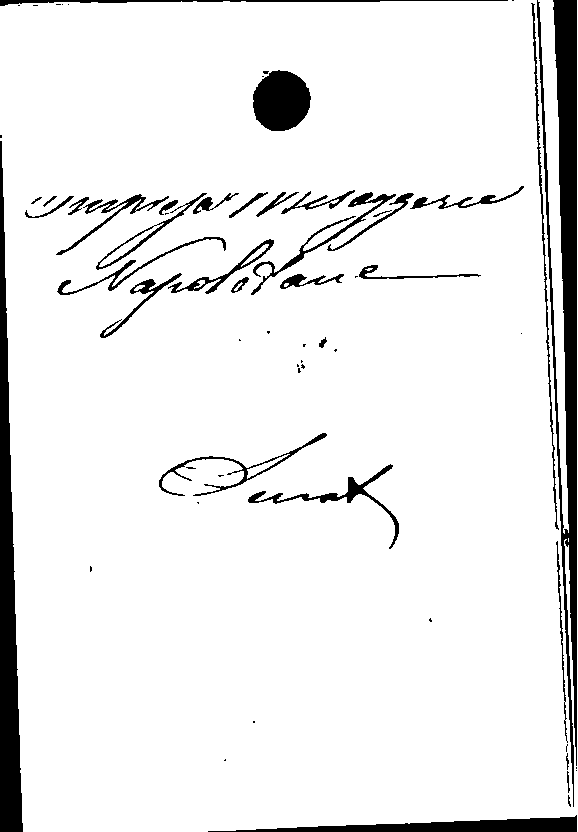 Impresa Messaggerie
Napoletane